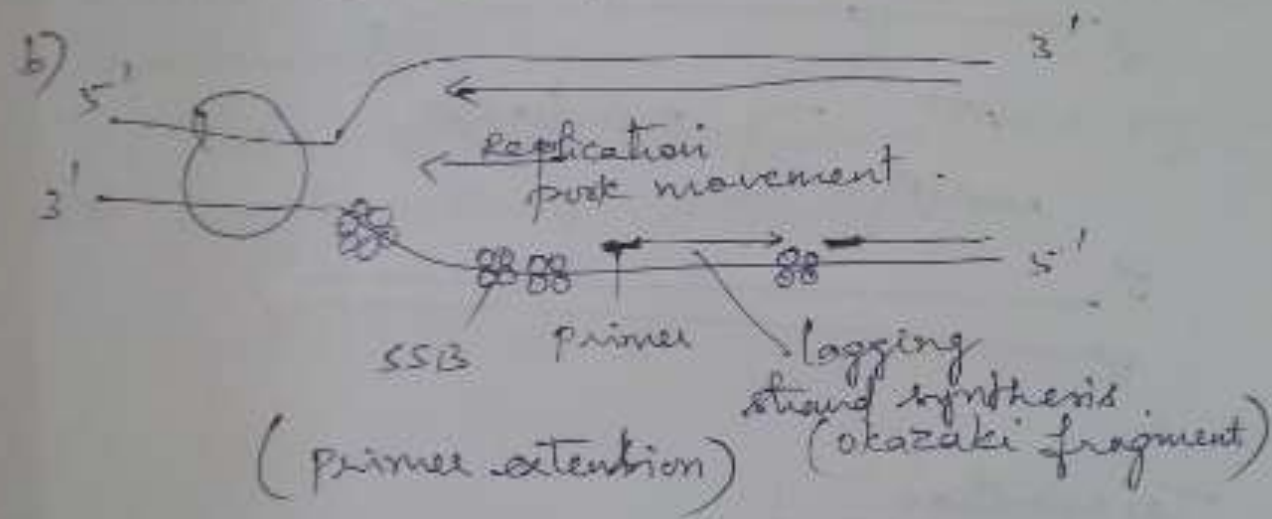 b)
5'
3'
3'
Replication
fork movement.
5'
SSB
primer
lagging
strand synthesis
(okazaki fragment)
(primer extention)